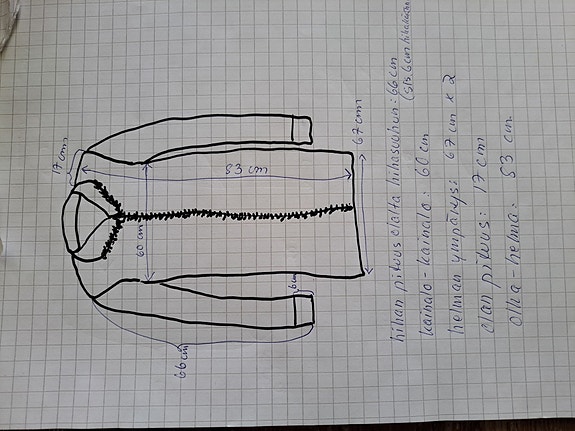 17 cm
53 cm
60 cm
67 cm
6cm
66 cm
hihan pituus olalta hihasuuhun: 66 cm
(sis. 6 cm hihansuun)
kainalo-kainalo: 60 cm
helman ympärys: 67 cm x 2
olan pituus: 17 cm
olka-helma: 53 cm